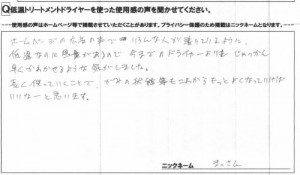 Q低温トリートメントドライヤーを使った使用感の声を聞かせてください。
※使用感の声はホームページ等で掲載させていただくことがあります。プライバシー保護のため掲載はニックネームとなります。
ホームページの
の声で
いろんな人が
ているように、
低温なのに風量があるので 今までのドライヤーよりも じゅうぶん
早くかわかせるような気がしました。
長く使っていくことで、
もこれからもっとよくなっていけば
いいなーと思います。
ニックネーム
まっさん